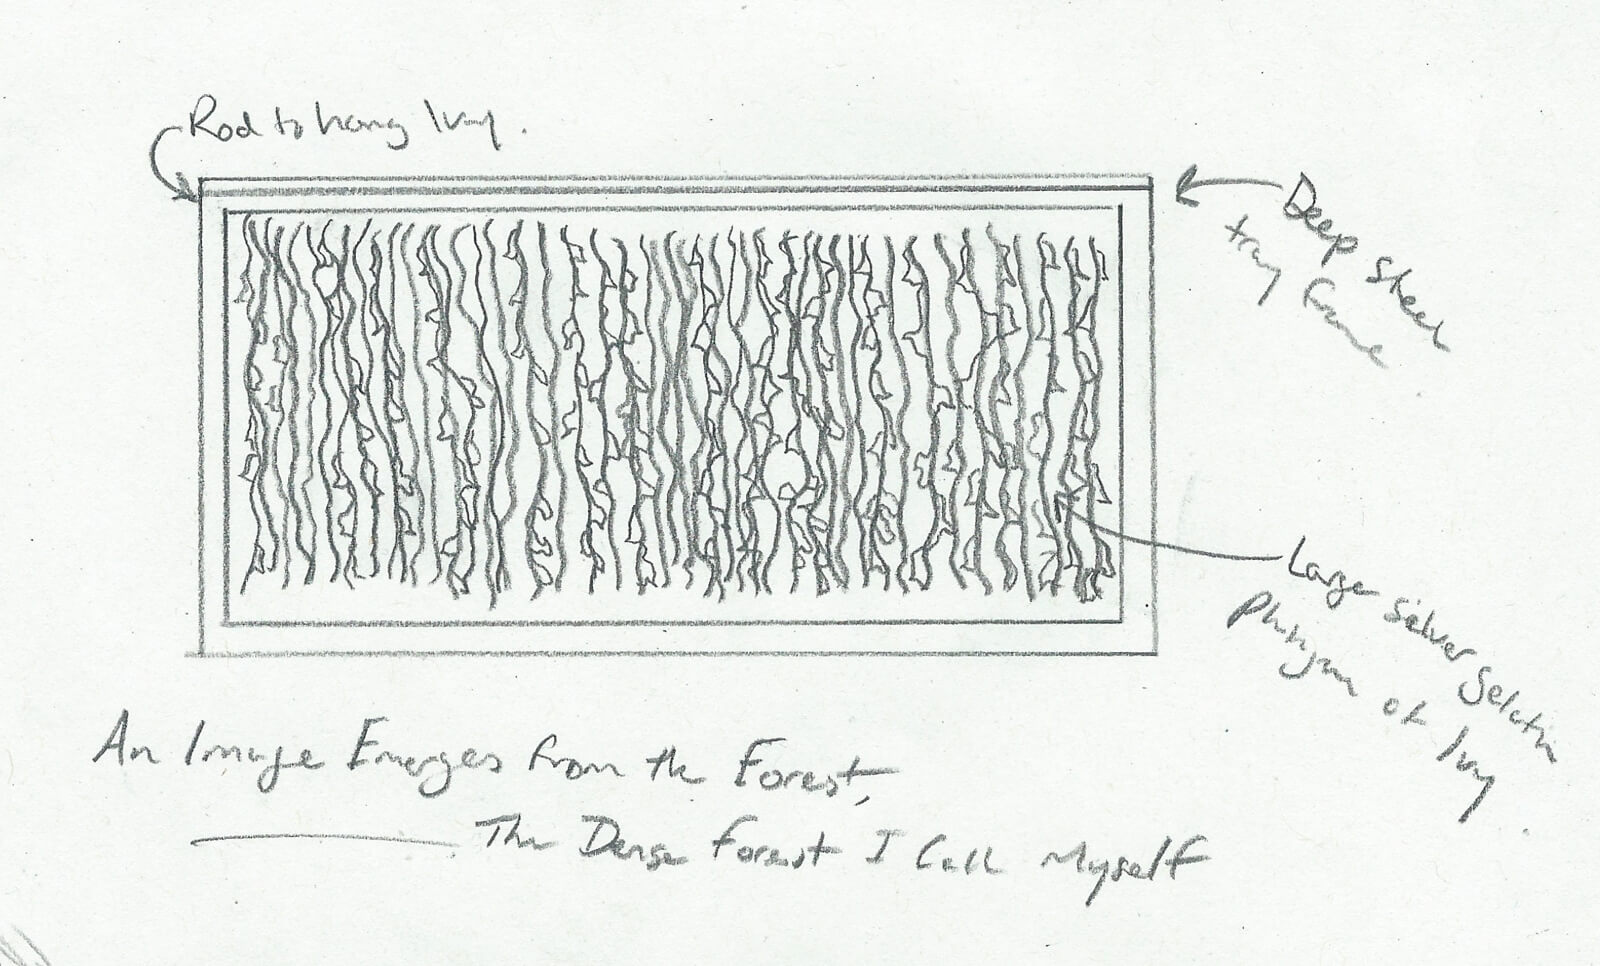 Rod to hang Ivy.
Deep steel
tray frame
Large silver gelatin
of Ivy
An Image Emerges from the Forest,
The Dense Forest I Call Myself